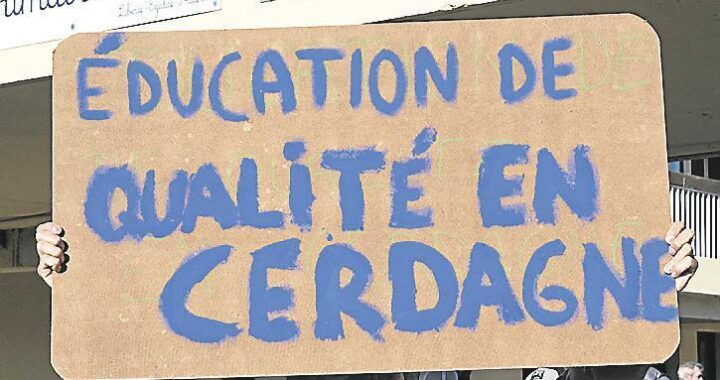 Liberté - Egalité - Fraternité
ÉDUCATION DE
QUALITÉ EN
CERDAGNE